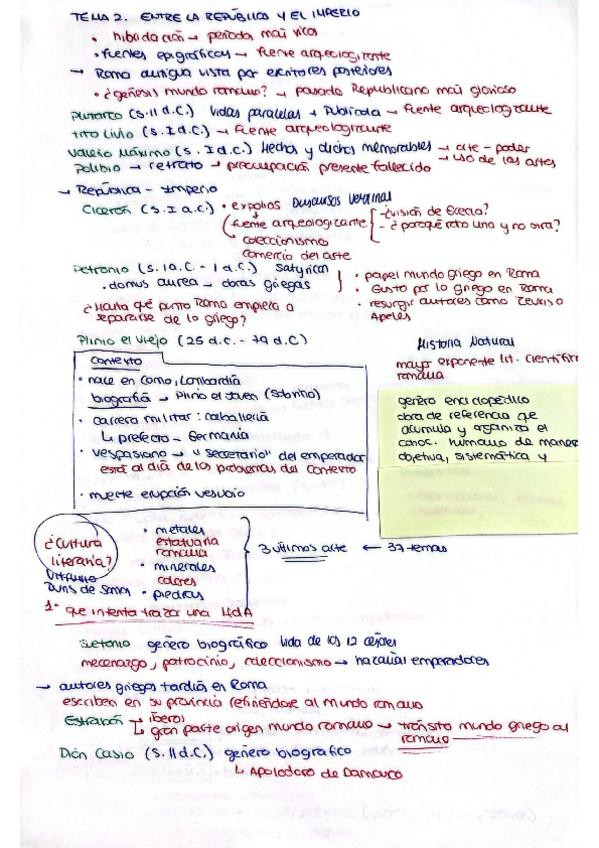 TEMA 2. ENTRE LA REPÚBLICA Y EL IMPERIO
• hibridación → periodo más rico
• fuentes epigráficas → fuente arqueologizante
→ Roma antigua vista por escritores posteriores
• ¿génesis mundo romano? → pasado Republicano más glorioso
Plutarco (s. II d.C.) Vidas paralelas + Publícola → fuente arqueologizante
Tito Livio (s. I d.C.) → fuente arqueologizante
Valerio Máximo (s. I d.C.) Hechos y dichos memorables → arte - poder
→ uso de las artes
Polibio → retrato → preocupación presente fallecido
→ República - Imperio
Cicerón (s. I a.C.) • expolios Discursos Verrinas
fuente arqueologizante
- ¿visión de Grecia?
- ¿por qué roto una y no otra?
coleccionismo
comercio del arte
Petronio (s. I a.C. - I d.C.) Satyricon
• domus aurea → obras griegas
• papel mundo griego en Roma
• Gusto por lo griego en Roma
• resurgir autores como Zeuxis o Apeles
¿Hasta qué punto Roma empieza a
separarse de lo griego?
Plinio el Viejo (25 d.c. - 79 d.C)
Historia Natural
mayor exponente lit. científica
romana
Contexto
• nace en Como, Lombardía
biografía → Plinio el Joven (sobrino)
• carrera militar: caballería
↳ prefecto - Germania
• Vespasiano → "secretario" del emperador
está al día de los problemas del contexto
• muerte erupción vesubio
género enciclopédico
obra de referencia que
acumula y organiza el
conoc. humano de manera
objetiva, sistemática y
¿Cultura
literaria?
Vitruvio
Duris de Samos
• metales
estatuaria
romana
• minerales
colores
• piedras
3 últimos arte ← 37 temas
1º que intenta trazar una HdA
Suetonio género biográfico Vida de los 12 césares
mecenazgo, patrocinio, coleccionismo → hazañas emperadores
→ autores griegos tardíos en Roma
escriben en su provincia refiriéndose al mundo romano
Estrabón → íberos
↳ gran parte origen mundo romano → tránsito mundo griego al
romano
Dión Casio (s. II d.C.) género biográfico
↳ Apolodoro de Damasco